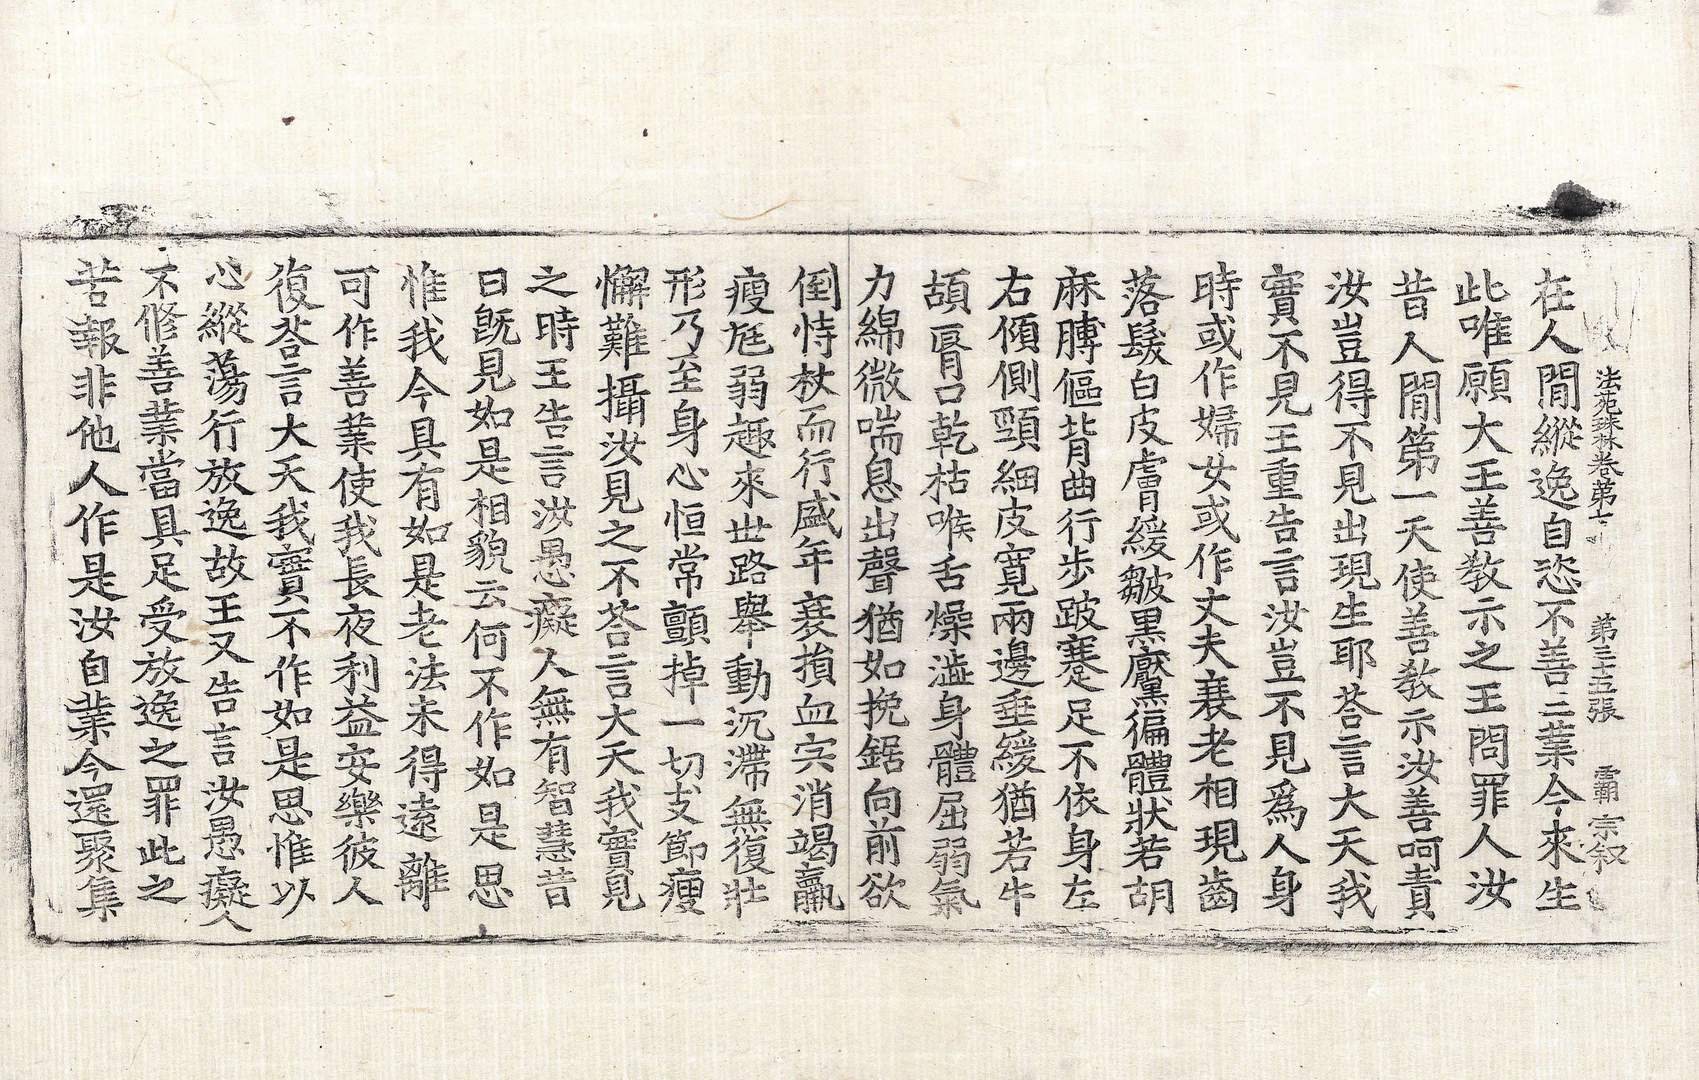 法苑珠林卷第十 第三十五張 霸 宗叙
在人間縱逸自恣不善三業今來生
此唯願大王善教示之王問罪人汝
昔人間第一天使善教示汝善呵責
汝豈得不見出現生耶荅言大天我
實不見王重告言汝豈不見爲人身
時或作婦女或作丈夫衰老相現齒
落髮白皮膚緩皺黑黶徧體狀若胡
麻膊傴背曲行步跛蹇足不依身左
右傾側頸細皮寬兩邊垂緩猶若牛
頡脣口乾枯喉舌燥澁身體屈弱氣
力綿微喘息出聲猶如挽鋸向前欲
倒恃杖而行盛年衰損血宍消竭羸
瘦尫弱趣來世路舉動沉滯無復壯
形乃至身心恒常顫掉一切支節瘦
懈難攝汝見之不荅言大天我實見
之時王告言汝愚癡人無有智慧昔
日旣見如是相貌云何不作如是思
惟我今具有如是老法未得遠離
可作善業使我長夜利益安樂彼人
復荅言大天我實不作如是思惟以
心縱蕩行放逸故王又告言汝愚癡人
不修善業當具足受放逸之罪此之
苦報非他人作是汝自業今還聚集